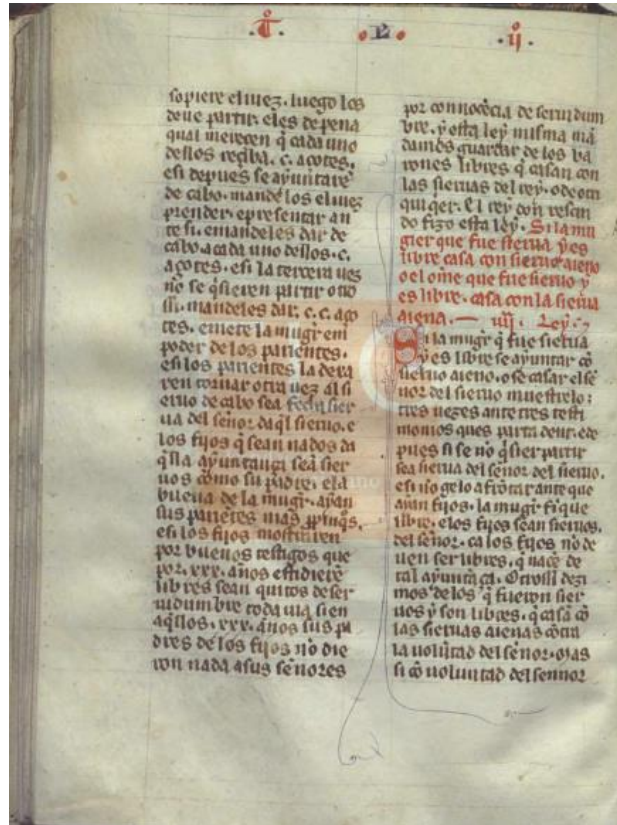 .T. .L. .ij.
sopiere el iuez. luego los
deue partir. eles de pena
qual merecen q̃ cada uno
dellos reçiba .c. açotes.
esi depues se ayuntarẽ
de cabo. mandelos el iuez
prender. epresentar an
te si. emandeles dar de
cabo. acada uno dellos .c.
açotes. esi la tercera uez
no se q̃sieren partir otro
ssi. mandeles dar .c.c. aço
tes. emete la mugr̃ en
poder de los parientes.
esi los parientes la dexa
ren tornar otra uez al si
eruo de cabo sea fecha sier
ua del señor daq̃l sieruo. e
los fijos q̃ sean nados da
q̃lla ayuntança seã sier
uos cõmo su padre. ela
buena de la mugr̃. ayan
sus pariẽtes mas pp̃inq̃s.
esi los fijos mostraren
por buenos testigos que
por .xxx. años estidierẽ
libres sean quitos de ser
uidumbre toda uia si en
aq̃llos .xxx. años sus pa
dres de los fijos nõ die
ron nada asus señores
por connoçẽcia de seruidum
bre. y esta ley misma mã
damos guardar de los ba
rones libres q̃ casan con
las sieruas del rey. o de otri
qui qer. El rey don rescin
do fizo esta ley. Si la mu
gier que fue sierua y es
libre casa con sieruo aieno
o el ome que fue sieruo y
es libre. casa con la sierua
aiena. — iiij. Ley.
Si la mugr̃ q̃ fue sierua
y es libre se ayuntar cõ
sieruo aieno. o se casar el se
ñor del sieruo muestrelo
tres uezes ante tres testi
monios ques parta dent. ede
pues si se no q̃sier partir
sea sierua del señor del sieruo.
esi no gelo afrõtar ante que
ayan fijos. la mugr̃ fiq̃e
libre. elos fijos sean sieruos.
del señor. ca los fijos nõ de
uen ser libres. q̃ naçẽ de
tal ayuntãça. Otrossi dezi
mos de los q̃ fueron sier
uos y son libres. q̃ casã cõ
las sieruas aienas cõtra
la uolũtad del señor. mas
si cõ uoluntad del sennor